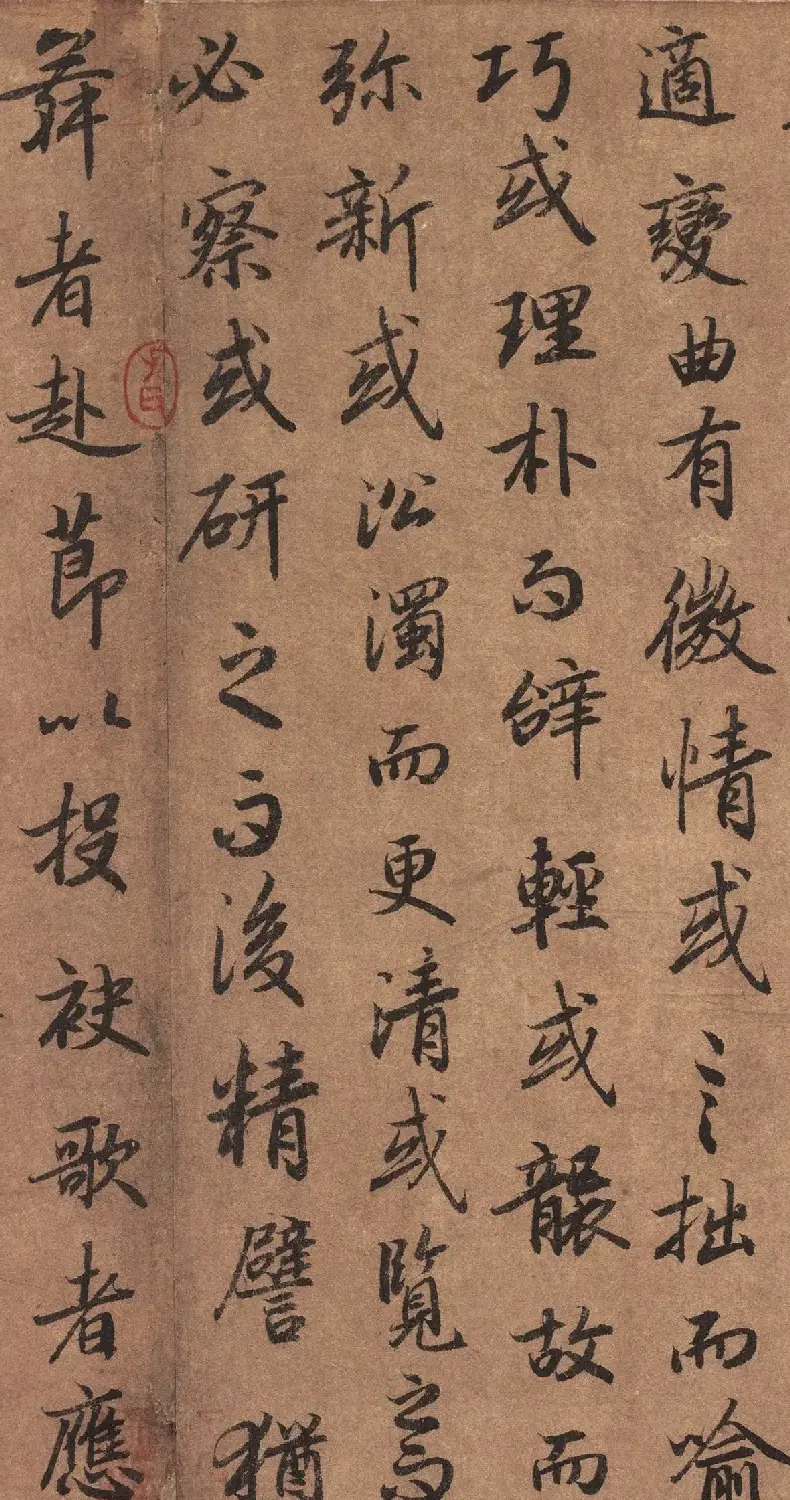 適變曲有微情或言拙而喻
巧或理朴而辞輕或襲故而
弥新或沿濁而更清或覽之而
必察或研之而後精譬猶
舞者赴節以投袂歌者應